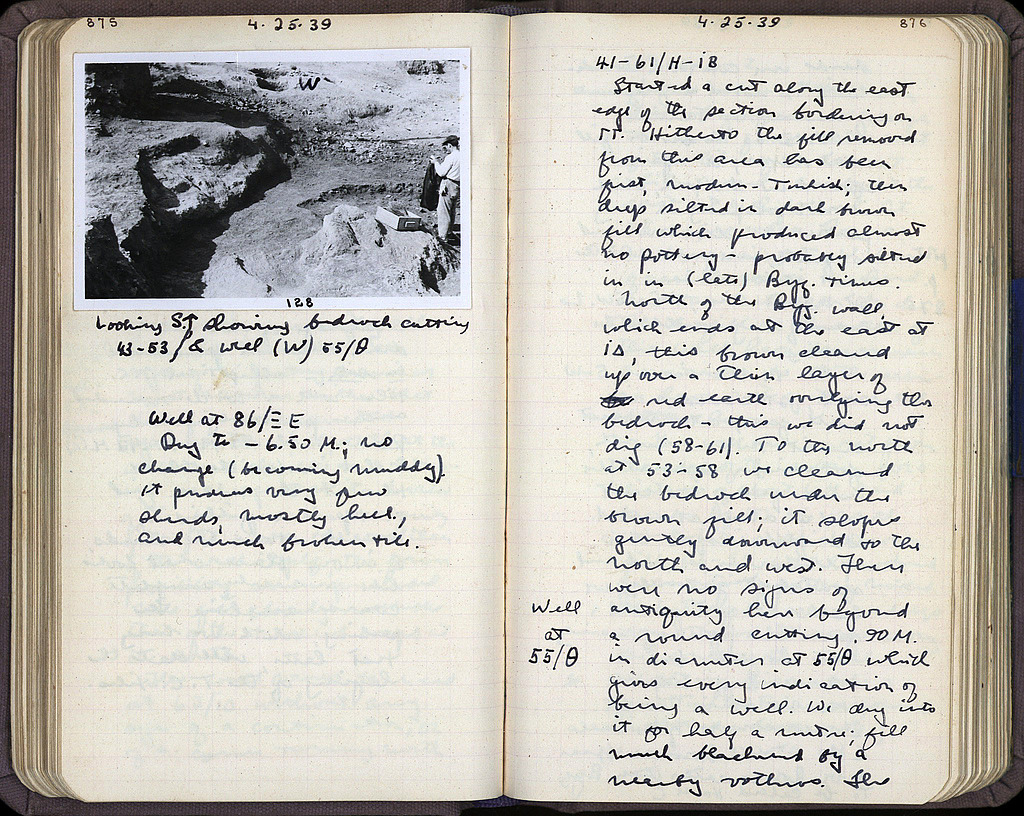 875
4·25·39
W
128
Looking S.↑ showing bedrock cutting
43-53/ & well (W) 55/θ
Well at 86/Ξ E
Dug to -6.50 M.; no
change (becoming muddy).
it produces very few
sherds, mostly hell.,
and much broken tile.
4·25·39
876
41-61/H-IB
Started a cut along the east
edge of the section bordering on
ΓΓ. Hitherto the fill removed
from this area has been
first, modern-Turkish; then
deep silted in dark brown
fill which produced almost
no pottery - probably silted
in in (late) Byz. times.
North of the Byz. wall,
which ends at the east at
IΔ, this brown cleaned
up over a thin layer of
red earth overlying the
bedrock - this we did not
dig (58-61). To the north
at 53-58 we cleaned
the bedrock under the
brown fill; it slopes
gently downward to the
north and west. There
were no signs of
antiquity here beyond
a round cutting .90 M.
in diameter at 55/θ which
gives every indication of
being a well. We dug into
it for half a metre; fill
much blackened by a
nearby vothros. The
Well
at
55/θ